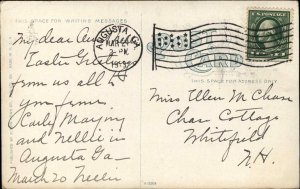 THIS SPACE FOR WRITING MESSAGES
My dear Aunt
Easter Greetings
from us all to
you from
Carly Margory
and Nellie in
Augusta Ga—
March 20
AUGUSTA, GA.
MAR 21
2 - PM
THIS SPACE FOR ADDRESS ONLY
Miss Ellen M Chase
Chase Cottage
Whitefield
N.H.